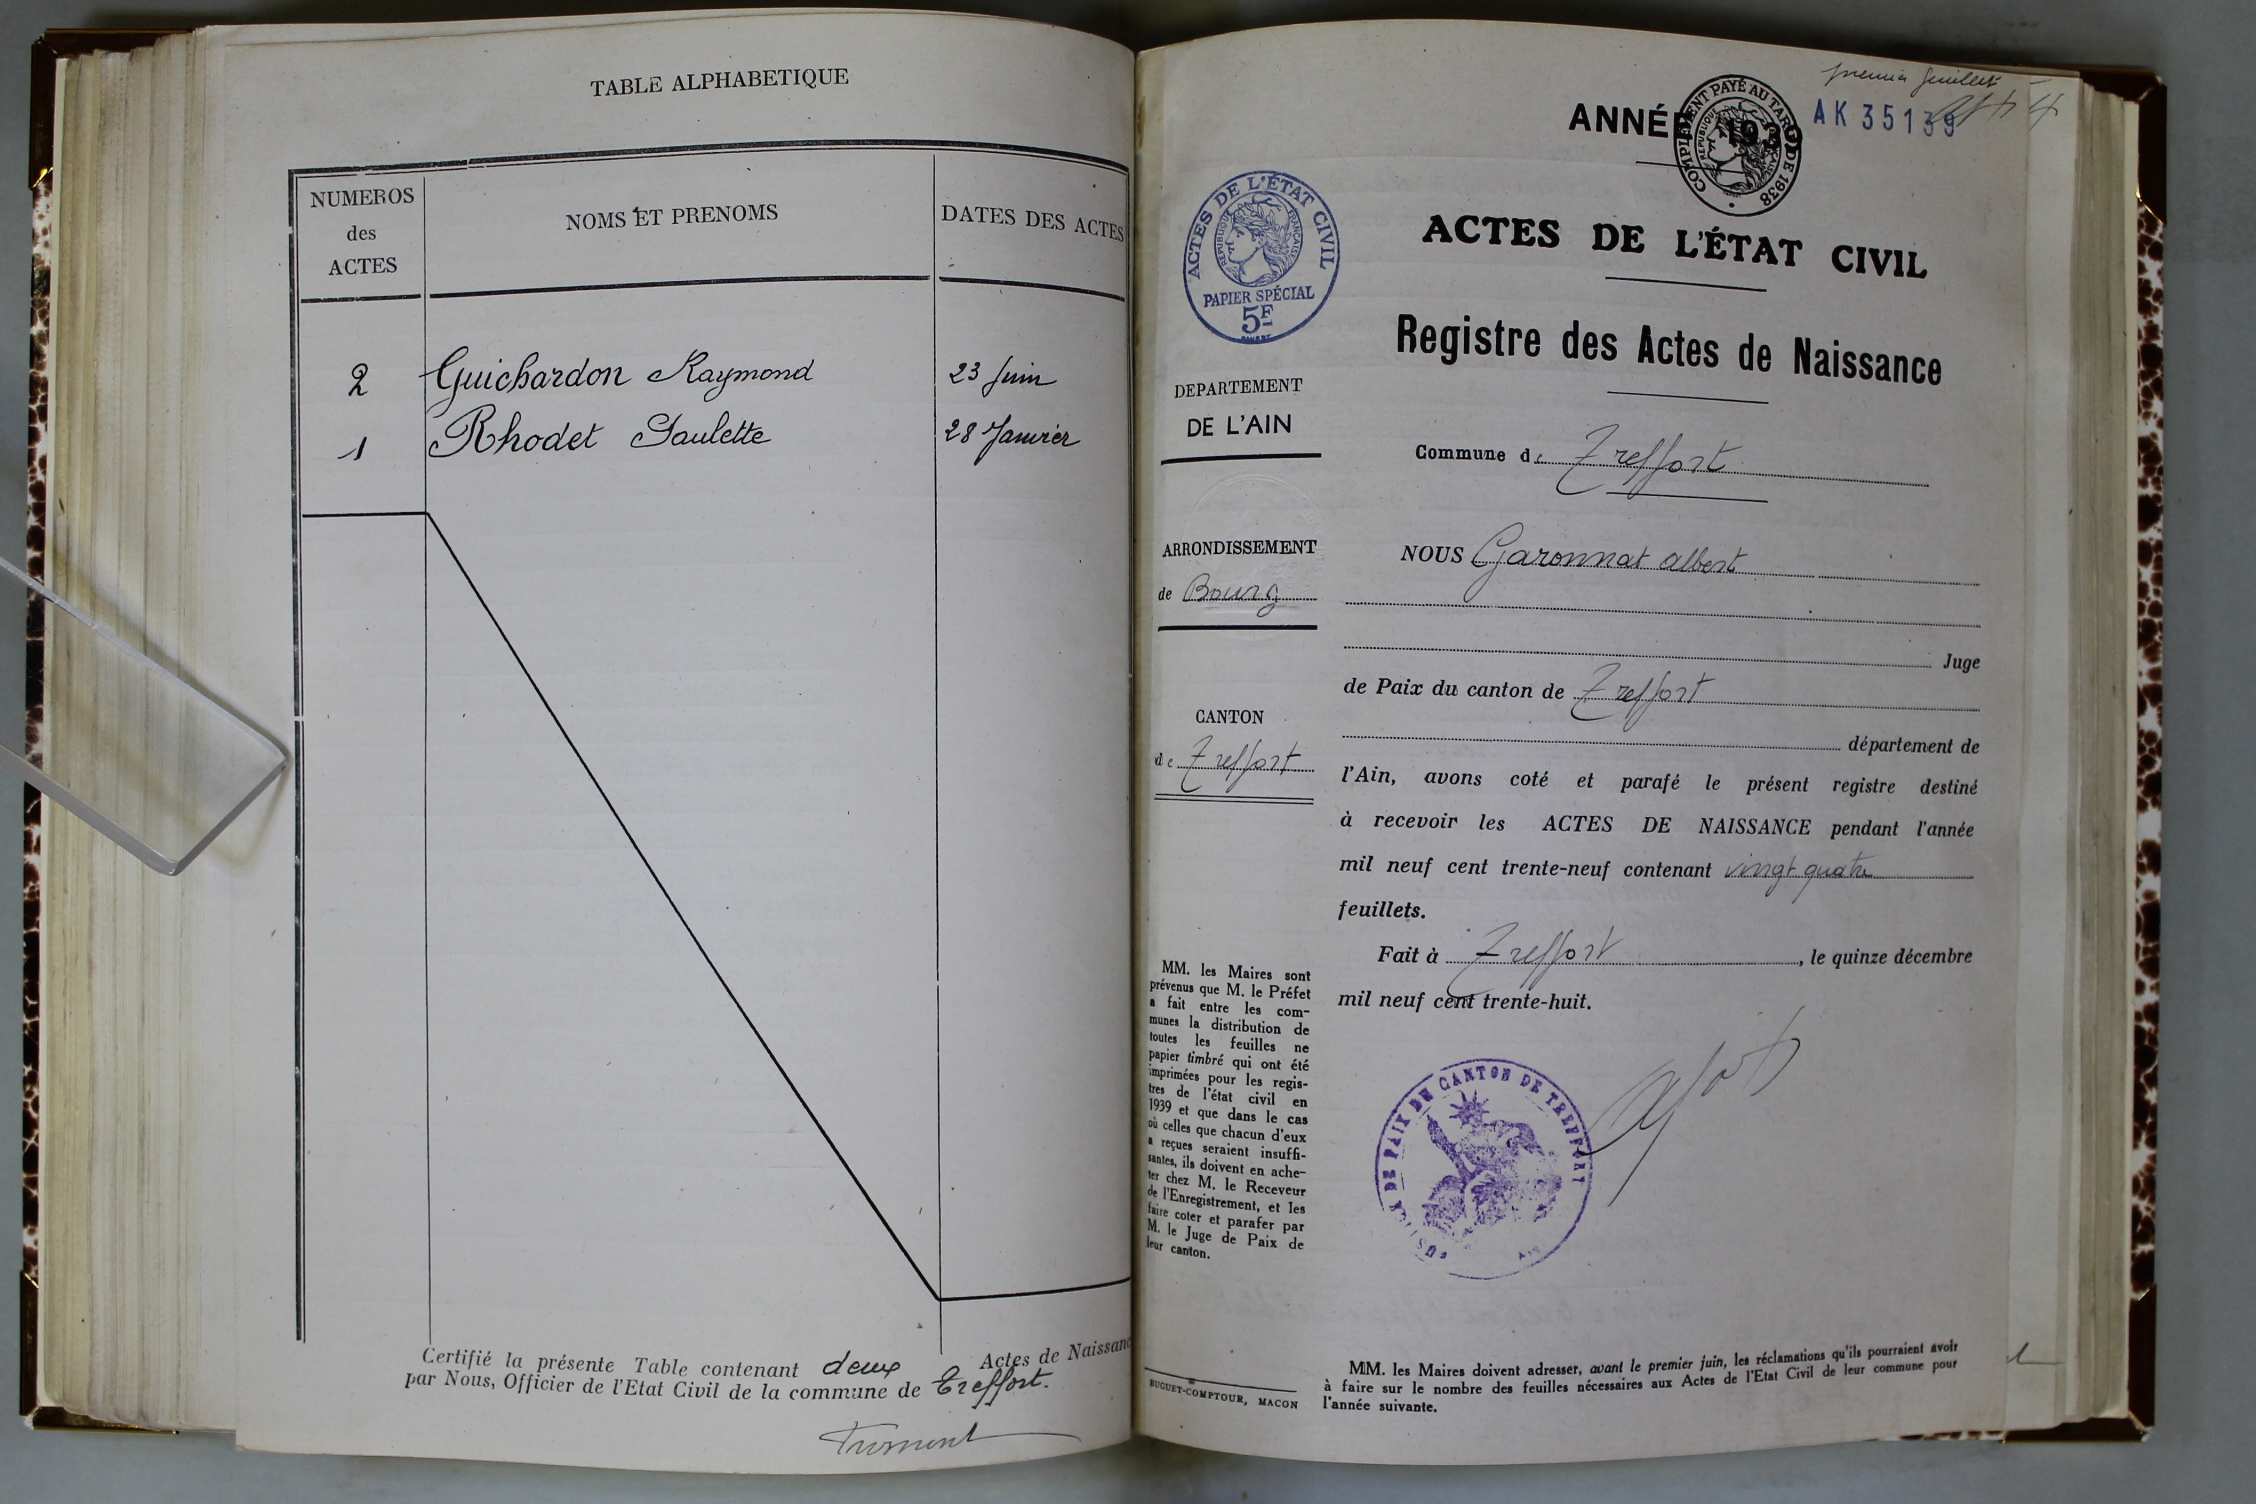 TABLE ALPHABETIQUE
NUMEROS
des
ACTES
NOMS ET PRENOMS
DATES DES ACTES
2 Guichardon Raymond 23 Juin
1 Rhodet Paulette 28 Janvier
Certifié la présente Table contenant deux Actes de Naissanc
par Nous, Officier de l'Etat Civil de la commune de Treffort.
premier feuillet
AK 35139
ANNÉE 193
COMPLÉMENT PAYÉ AU TARIF DE 1938
REPUBLIQUE FRANÇAISE
ACTES DE L'ÉTAT CIVIL
REPUBLIQUE FRANÇAISE
PAPIER SPÉCIAL
5F
ACTES DE L'ÉTAT CIVIL
Registre des Actes de Naissance
DEPARTEMENT
DE L'AIN
Commune de Treffort
ARRONDISSEMENT
de Bourg
NOUS Garonnat Albert
Juge
de Paix du canton de Treffort
CANTON
de Treffort
département de
l'Ain, avons coté et parafé le présent registre destiné
à recevoir les ACTES DE NAISSANCE pendant l'année
mil neuf cent trente-neuf contenant vingt quatre
feuillets.
Fait à Treffort, le quinze décembre
mil neuf cent trente-huit.
MM. les Maires sont
prévenus que M. le Préfet
a fait entre les com-
munes la distribution de
toutes les feuilles ne
papier timbré qui ont été
imprimées pour les regis-
tres de l'état civil en
1939 et que dans le cas
où celles que chacun d'eux
a reçues seraient insuffi-
santes, ils doivent en ache-
ter chez M. le Receveur
de l'Enregistrement, et les
faire coter et parafer par
M. le Juge de Paix de
leur canton.
JUSTICE DE PAIX DU CANTON DE TREFFORT
BUGUET-COMPTOUR, MACON
MM. les Maires doivent adresser, avant le premier juin, les réclamations qu'ils pourraient avoir
à faire sur le nombre des feuilles nécessaires aux Actes de l'Etat Civil de leur commune pour
l'année suivante.